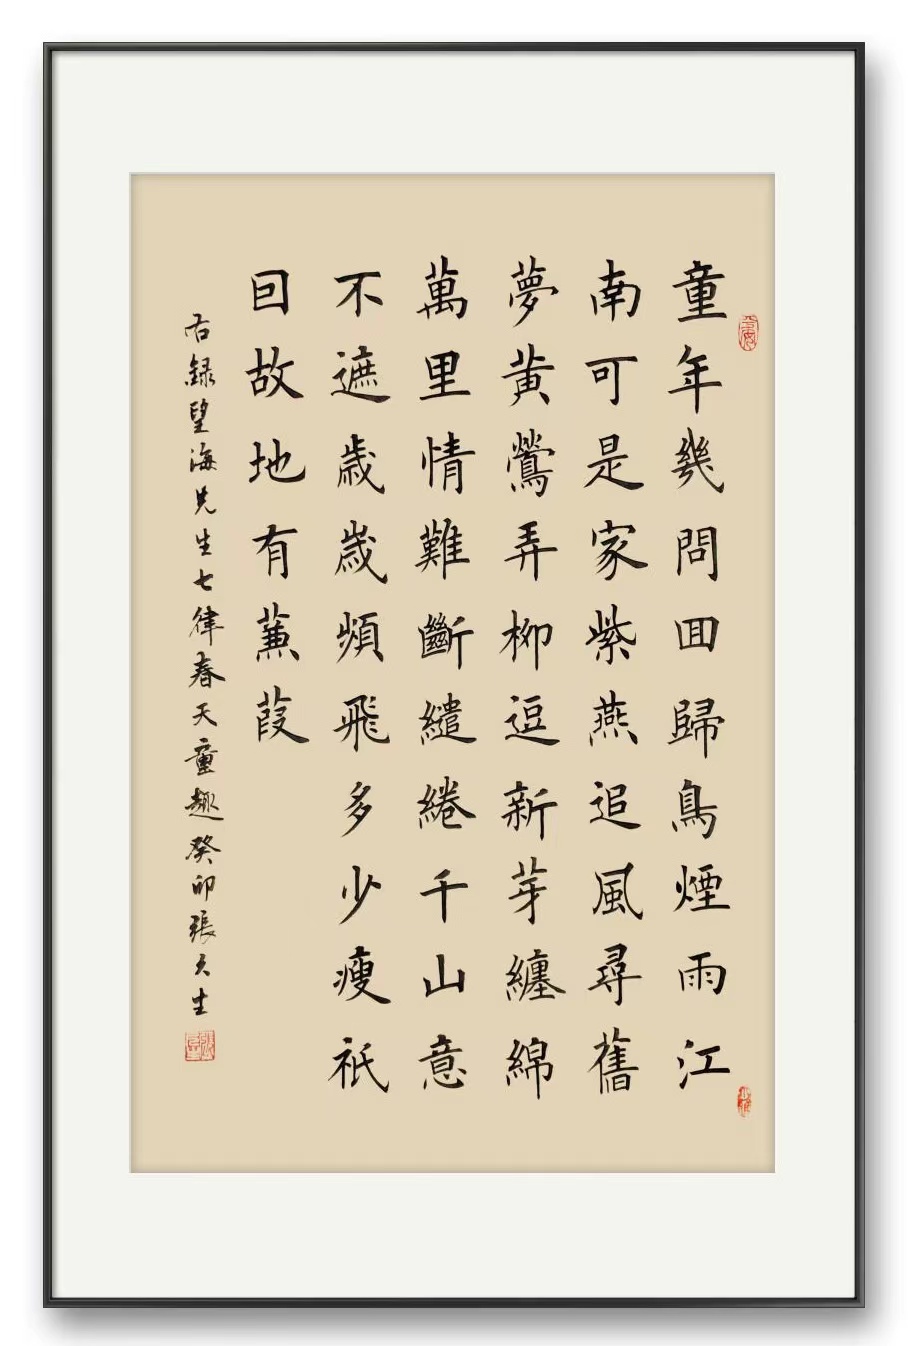 童年幾問囬歸鳥煙雨江
南可是家紫燕追風尋舊
夢黄鶯弄柳逗新芽纏綿
萬里情難斷繾綣千山意
不遮歳歳頻飛多少瘦祇
囙故地有蒹葭
右録望海先生七律春天童趣癸卯張久生